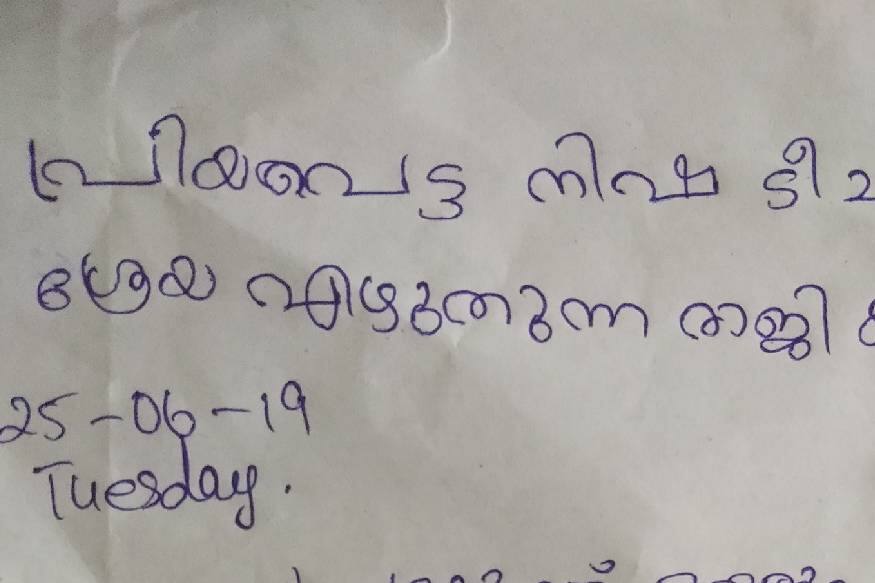 പ്രിയപെട്ട നിഷ ടീച
ശ്രേയ എഴുതുന്ന രാജി
25-06-19
Tuesday.